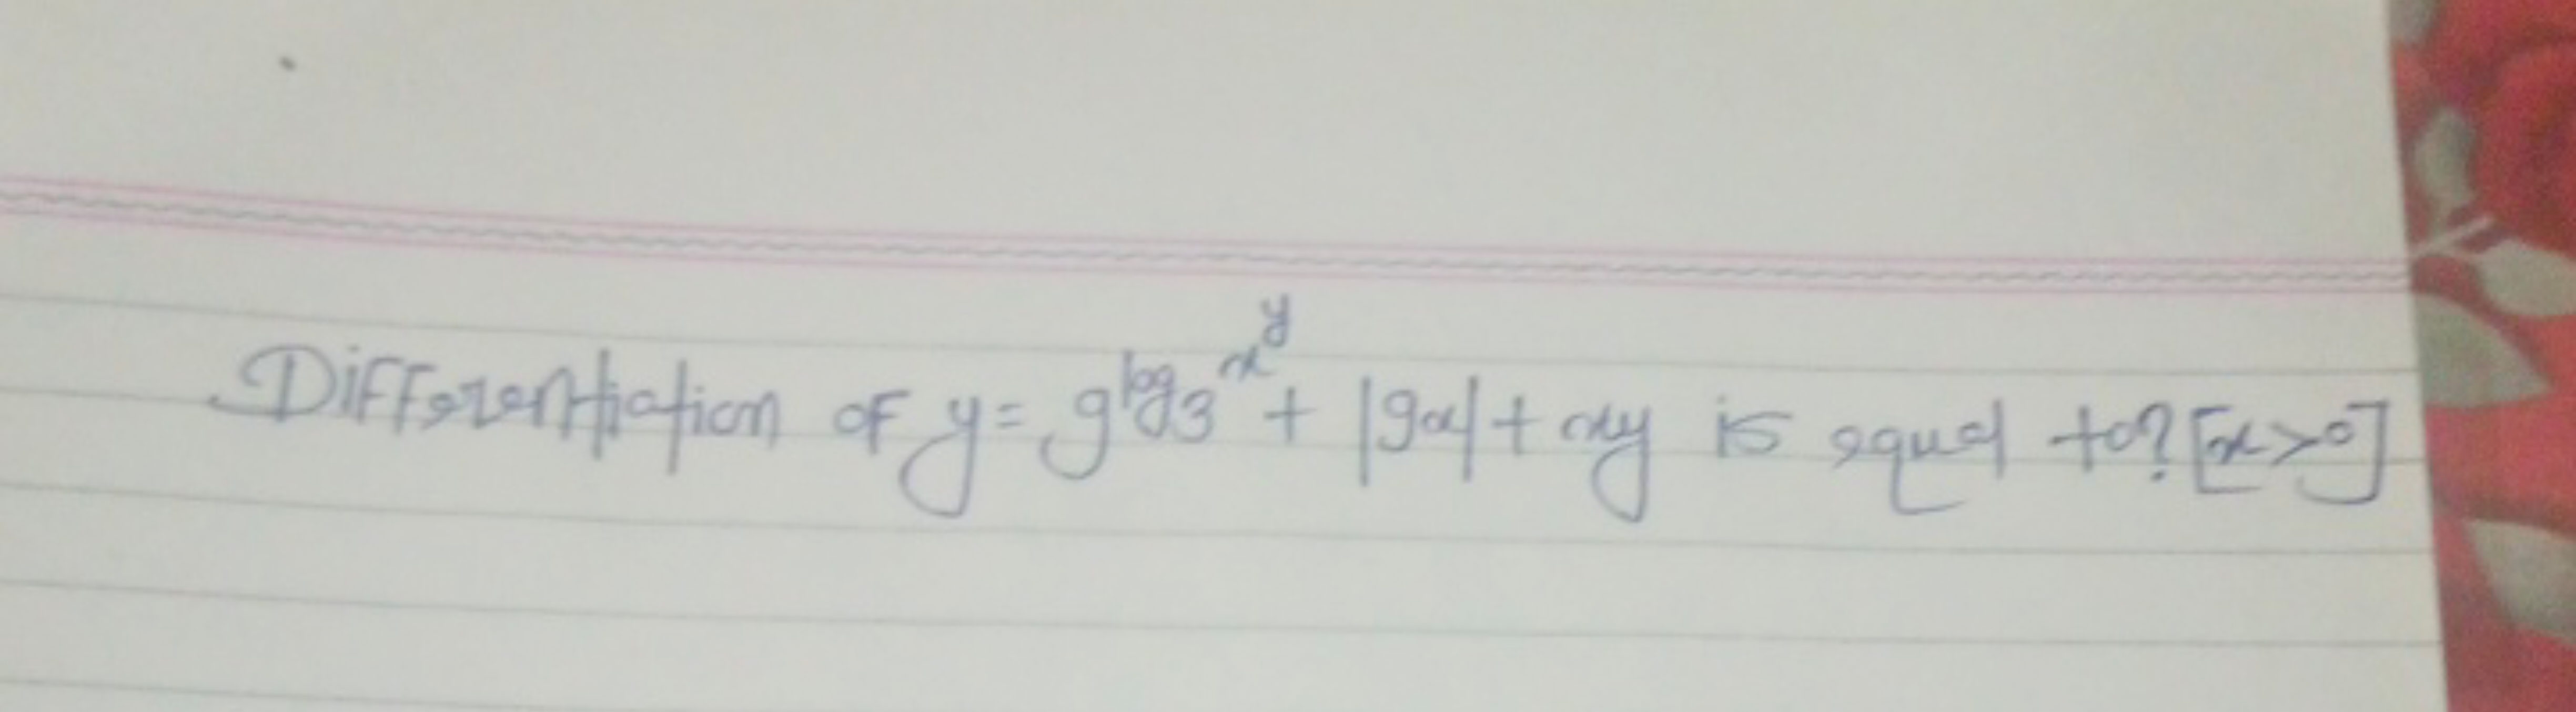 Differentiation of y = 9^{log_3 x^y} + |9x| + xy is equal to? [x>0]